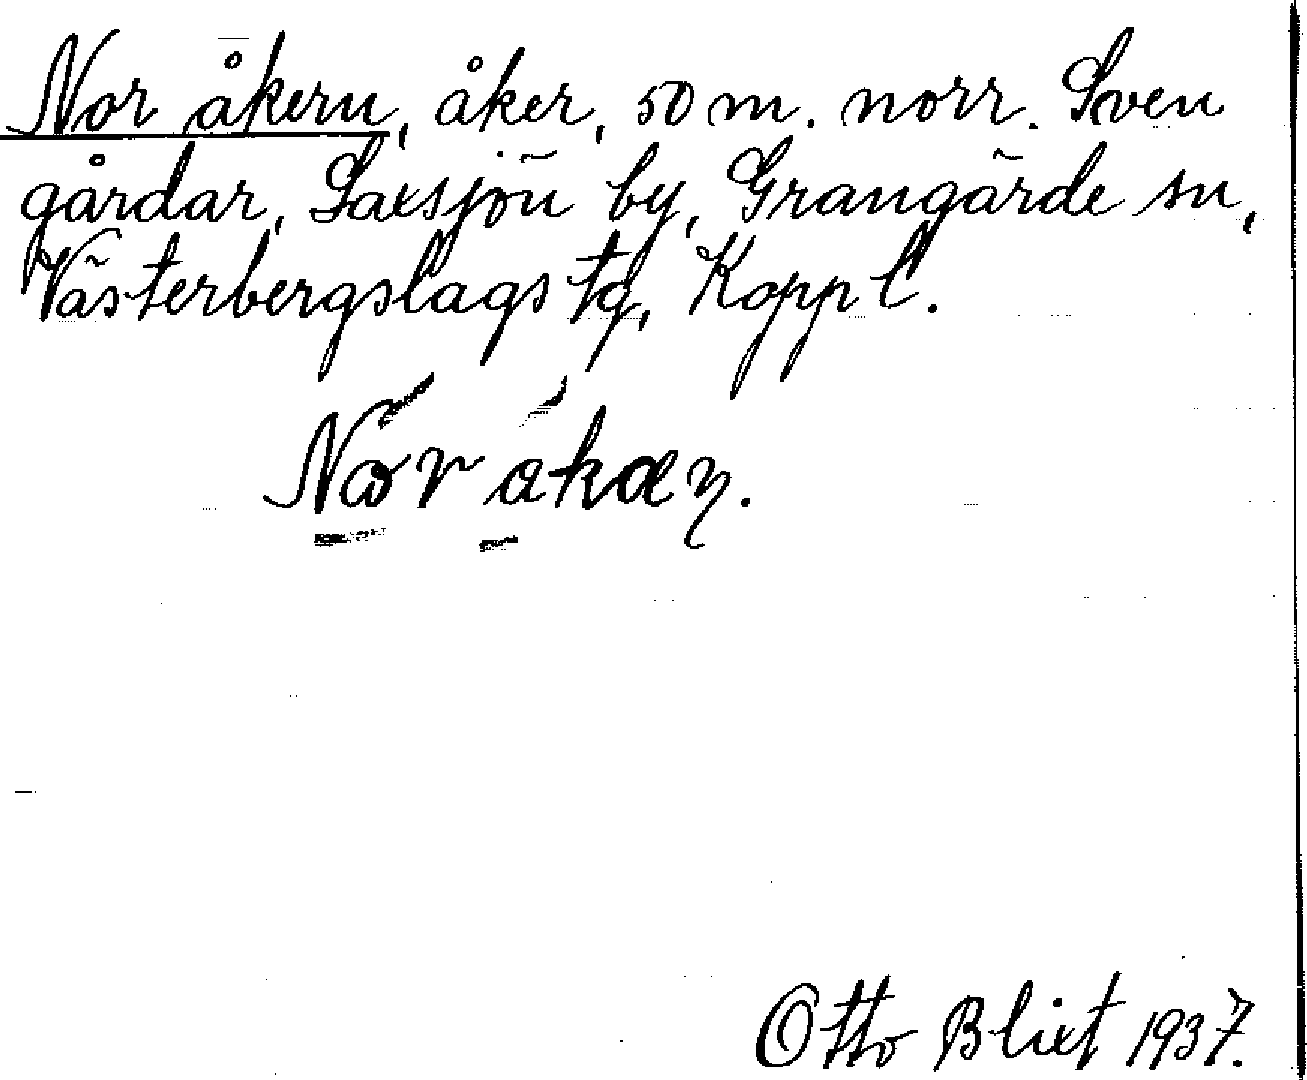 Nor åkern, åker, 50 m. norr. Sven
gårdar, Saxsjön by, Grangärde sn,
Västerbergslags tg, Koppl.
Nor åkæṇ.
Otto Blixt 1937.